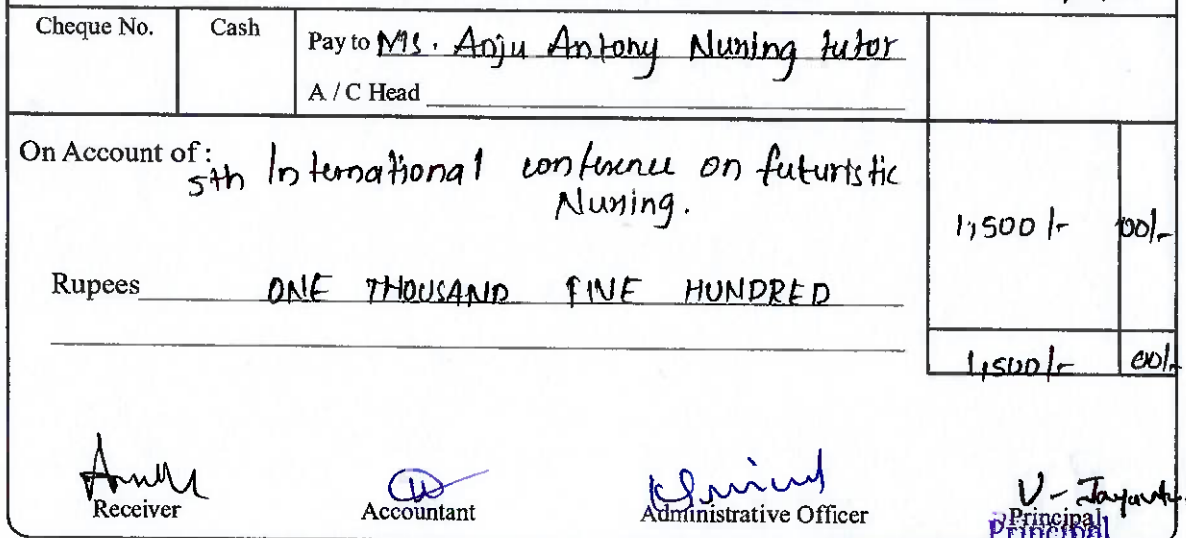 Cheque No. Cash Pay to Ms. Anju Antony Nursing tutor
A / C Head
On Account of :
5th International conference on futuristic
Nursing.
1,500/- 00/-
Rupees ONE THOUSAND FIVE HUNDRED
1,500/- 00/-
Receiver Accountant Administrative Officer V - Jayanthi
Principal
Principal